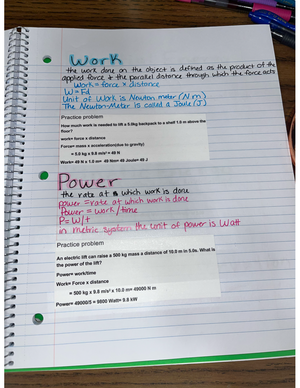 Work
the work done on the object is defined as the product of the
applied force & the parallel distance through which the force acts
Work = force x distance
W=Fd
Unit of Work is Newton meter (N m)
The Newton Meter is called a Joule (J)
Practice problem
How much work is needed to lift a 5.0kg backpack to a shelf 1.0 m above the
floor?
work= force x distance
Force= mass x acceleration(due to gravity)
= 5.0 kg x 9.8 m/s² = 49 N
Work= 49 N x 1.0 m= 49 Nm= 49 Joule= 49 J
Power
the rate at which work is done
power = rate at which work is done
Power = work / time
P=W/t
in metric system the unit of power is Watt
Practice problem
An electric lift can raise a 500 kg mass a distance of 10.0 m in 5.0s. What is
the power of the lift?
Power= work/time
Work= Force x distance
= 500 kg x 9.8 m/s² x 10.0 m= 49000 N m
Power= 49000/5 = 9800 Watt= 9.8 kW